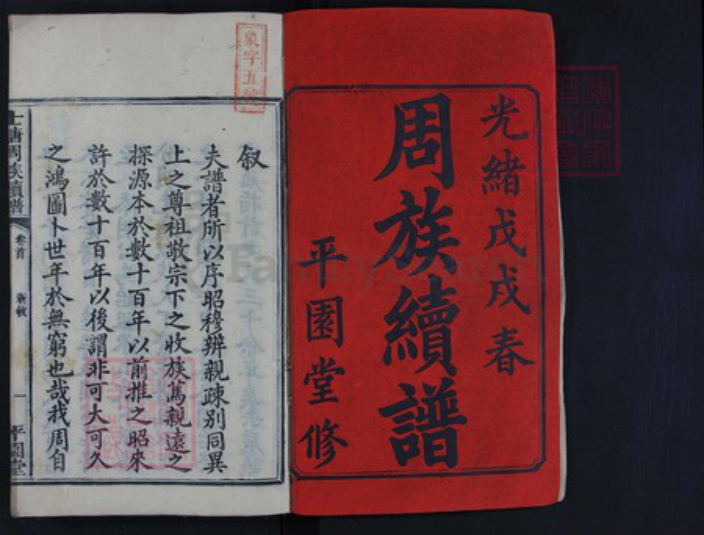 光緒戊戌春
周族續譜
平園堂修
象字五號
叙
夫譜者所以序昭穆辨親疎別同異
上之尊祖敬宗下之收族篤親遠之
探源本於數十百年以前推之昭來
許於數十百年以後謂非可大可久
之鴻圖卜世年於無窮也哉我周自
七塘周族續譜
卷首
一
平園堂